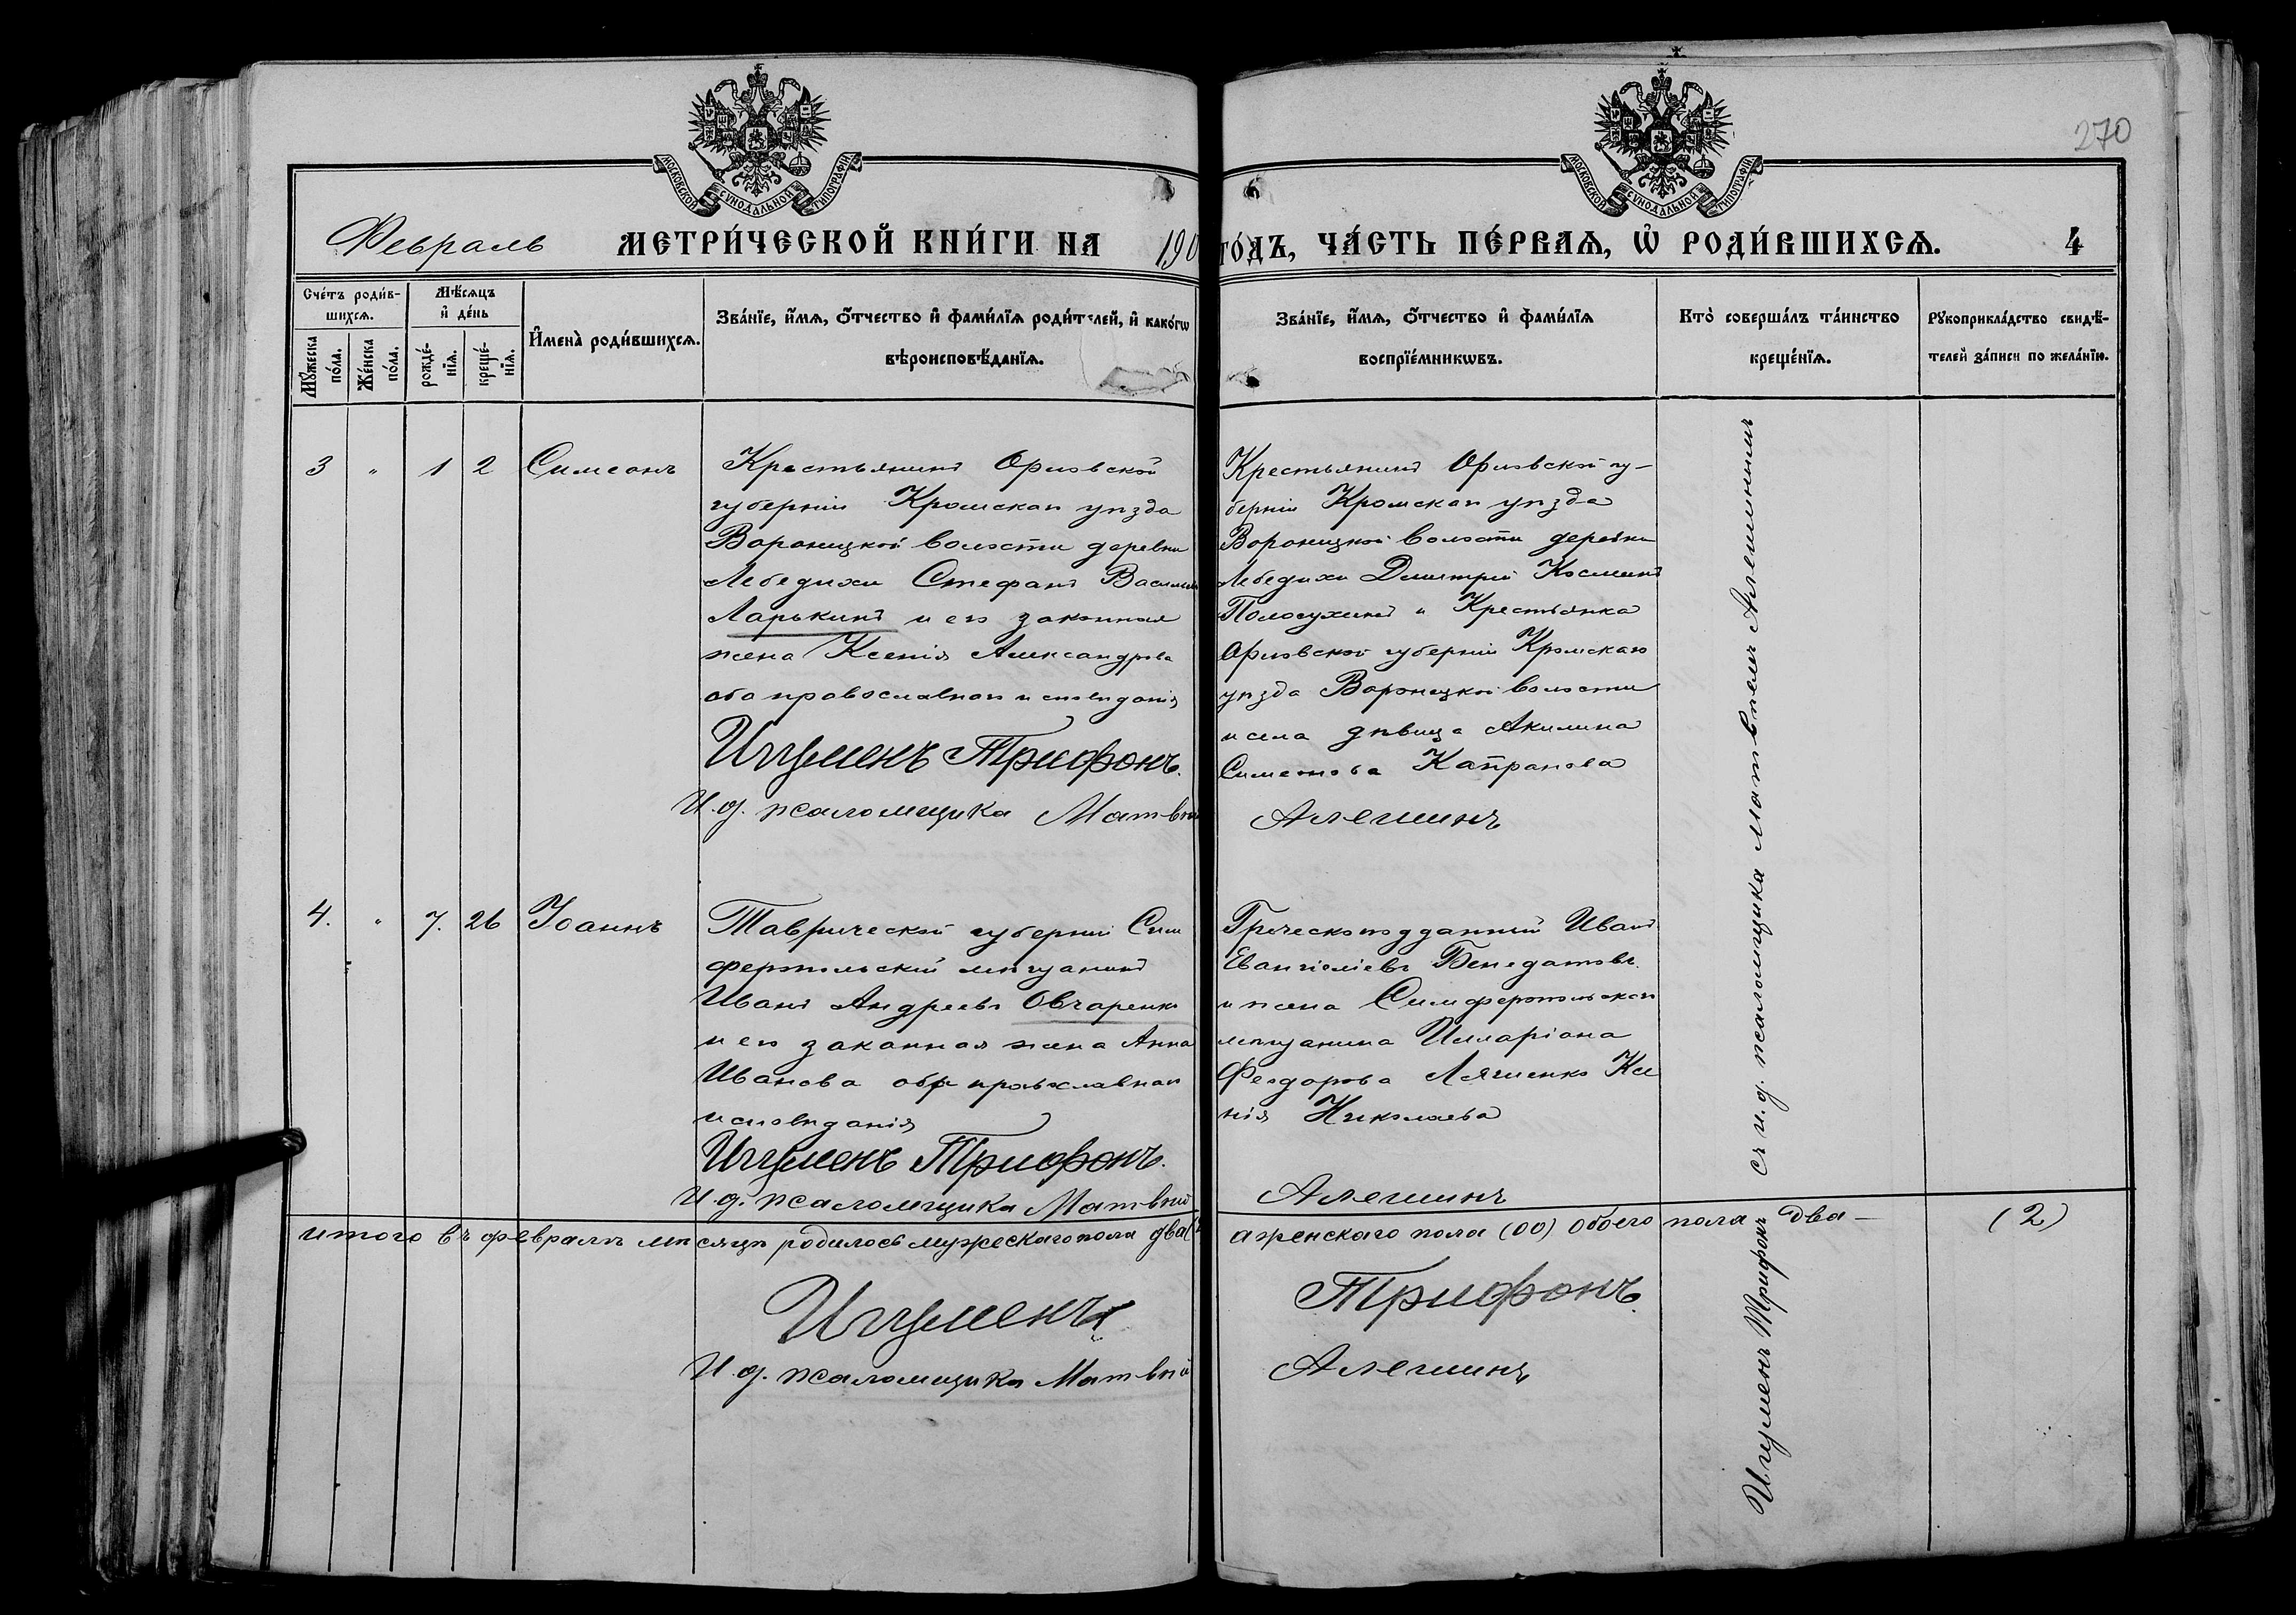 270
МОСКОВСКОЙ СѴНОДАЛЬНОЙ ТИПОГРАФІИ
МОСКОВСКОЙ СѴНОДАЛЬНОЙ ТИПОГРАФІИ
Февраль МЕТРИ́ЧЕСКОЙ КНИ́ГИ НА 190
ГО́ДЪ, ЧА́СТЬ ПЕ́РВАЯ, Ѡ҆ РОДИ́ВШИХСѦ. 4
Сче́тъ роди́в-
шихсѧ.
Мꙋ́жеска по́ла.
Же́нска по́ла.
Мѣ́сѧцъ
и҆ де́нь
рожде́-
нїѧ.
креще́-
нїѧ.
И҆мена̀ роди́вшихсѧ.
Зва́нїе, и҆́мѧ, ѻ҆́тчество и҆ фами́лїѧ роди́телей, и҆ како́гѡ
вѣроисповѣ́данїѧ.
Зва́нїе, и҆́мѧ, ѻ҆́тчество и҆ фами́лїѧ
воспрїе́мникѡвъ.
Кто̀ соверша́лъ та́инство
креще́нїѧ.
Рꙋкоприкла́дство свидѣ́-
телей за́писи по жела́нїю.
3 " 1 2 Симеонъ
Крестьянинъ Орловской
губерніи Кромскаго уѣзда
Вороницкой волости деревни
Лебедихи Стефанъ Васильев
Ларькинъ и его законная
жена Ксенія Александрова
оба православнаго исповѣданія
Игуменъ Трифонъ.
И. д. псаломщика Матвѣй
Крестьянинъ Орловской гу-
берніи Кромскаго уѣзда
Вороницкой волости деревни
Лебедихи Димитрій Косминъ
Полосухинъ и Крестьянка
Орловской губерніи Кромскаго
уѣзда Вороницкой волости
и села дѣвица Акилина
Симеонова Капранова
Алешинъ
4. " 7. 26 Іоаннъ
Таврической губерніи Сим
феропольскій мѣщанинъ
Иванъ Андреевъ Овчаренко
и его законная жена Анна
Иванова оба православнаго
исповѣданія
Игуменъ Трифонъ.
И. д. псаломщика Матвѣй
Греческоподданный Иванъ
Евангіеліевъ Бенедатовъ
и жена Симферопольскаго
мѣщанина Илларіона
Феодорова Лягшенко Ксе
нія Николаева
Алешинъ
Игуменъ Трифонъ съ и. д. псаломщика Матвѣемъ Алешинымъ
итого въ февралѣ мѣсяцѣ родилось мужескаго пола два (2
а женскаго пола (00) обоего пола два – (2)
Игуменъ
Трифонъ.
И. д. псаломщика Матвѣй
Алешинъ